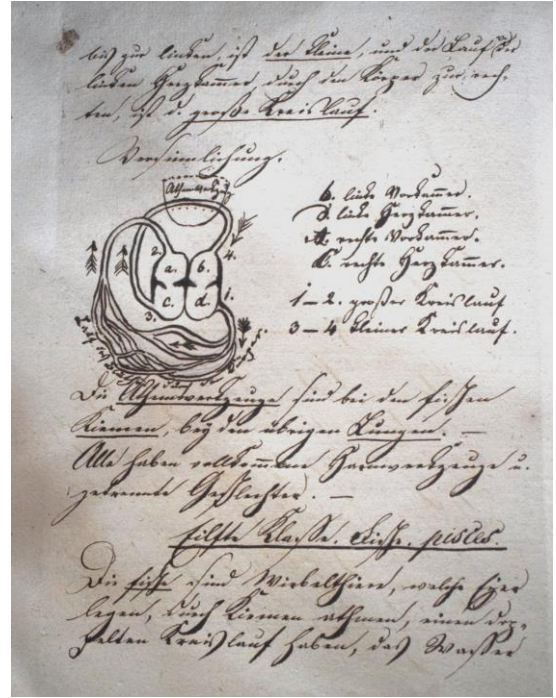 bis zur linken, ist der kleine, und der Lauf der
linken Herzkammer, durch den Körper zur rech-
ten, ist d. große Kreislauf.
Versinnlichung.
Athmwerkzg
b. linke Vorkammer.
d. linke Herzkammer.
a. rechte Vorkammer.
c. rechte Herzkammer.
1–2. großer Kreislauf
3–4 kleiner Kreislauf.
2.
a.
b.
4.
c.
d.
1.
3.
Lauf des
durch den
Die Athmwerkzeuge sind bei den fischen
Kiemen, bey den übrigen Lungen. —
Alle haben vollkommene Harnwerkzeuge u.
getrennte Geschlechter. —
Eilfte Klasse. Fische. pisces.
Die fische sind Wirbelthiere, welche Eyer
legen, durch Kiemen athmen, einen dop-
pelten Kreislauf haben, das Wasser